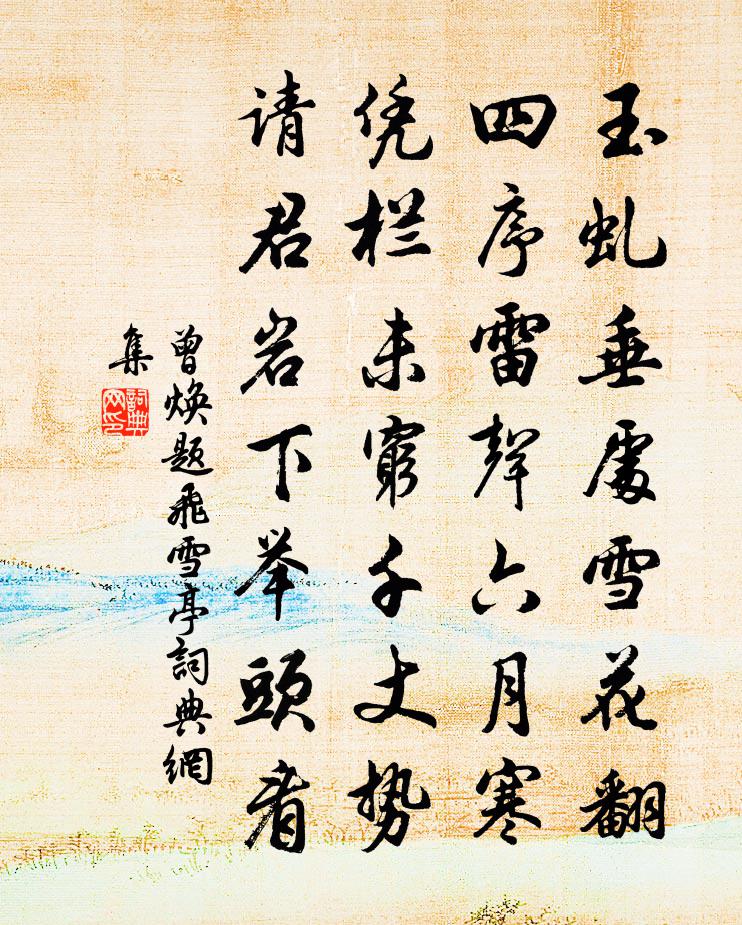 玉虬垂處雪花翻
四序雷聲六月寒
凭栏未窮千丈势
请君岩下举頭看
曾焕题飛雪亭詞典網
集
詞典
网印